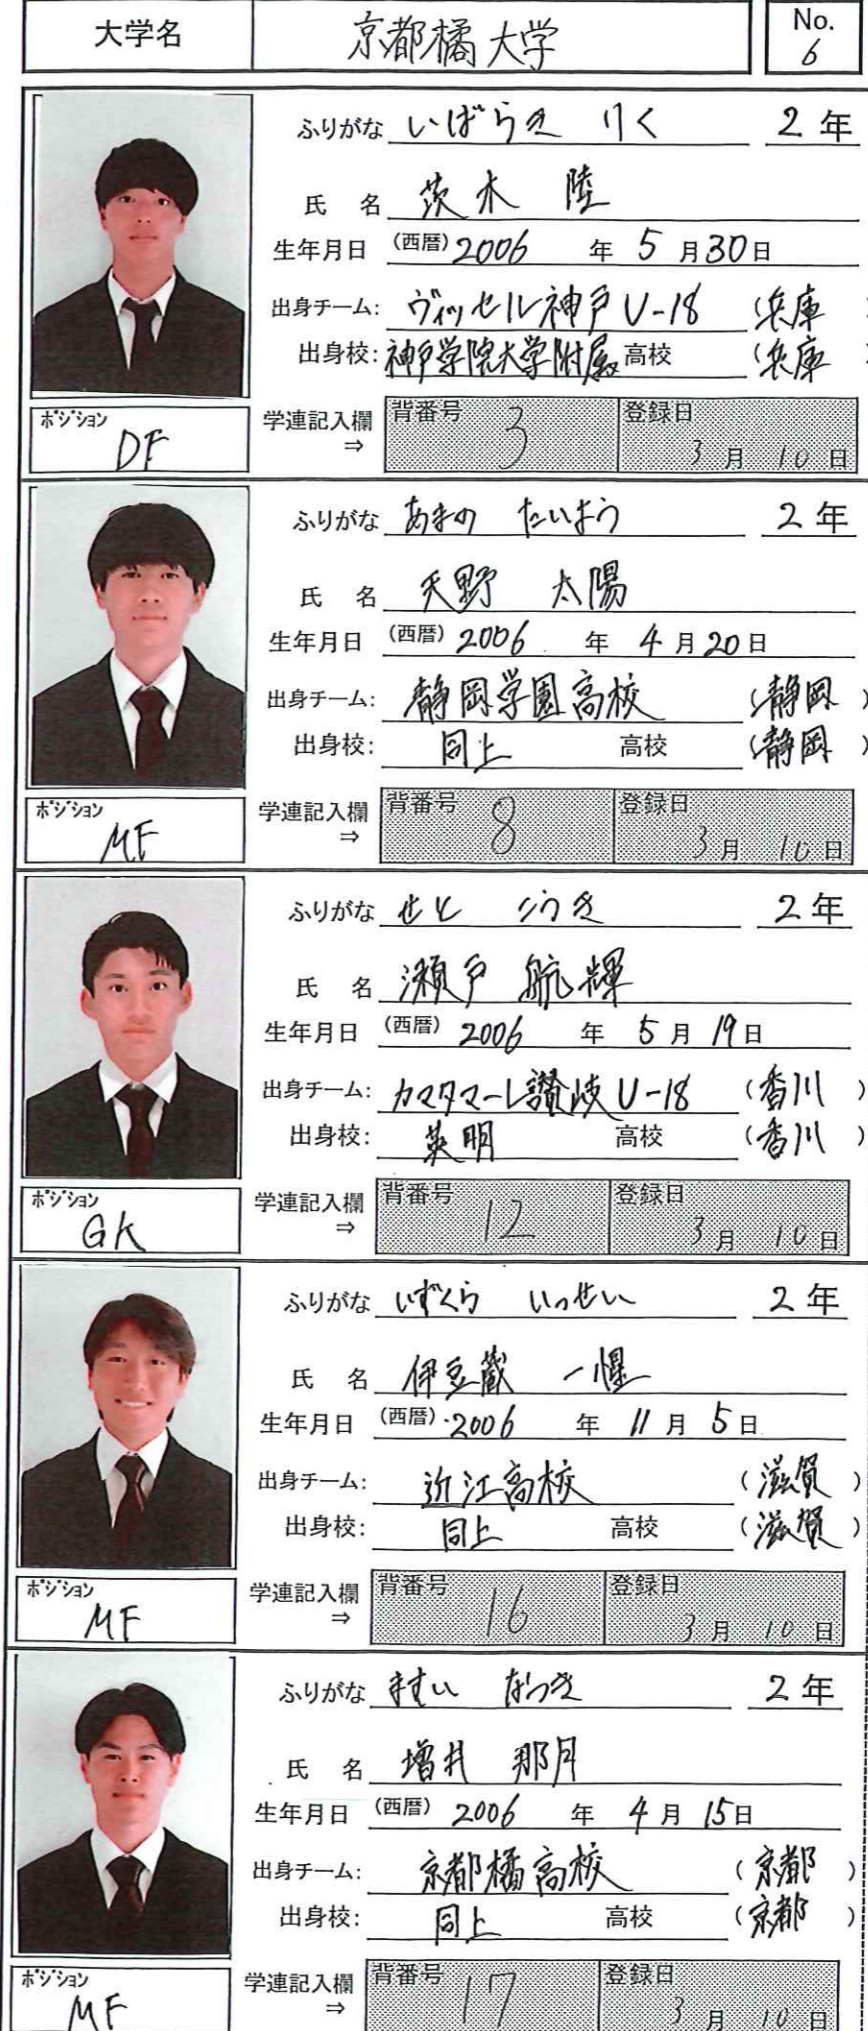 大学名 京都橘大学 No. 6
ふりがな いばらき りく 2年
氏 名 茨木 陸
生年月日 (西暦) 2006 年 5 月 30 日
出身チーム: ヴィッセル神戸 U-18 (兵庫
出身校: 神戸学院大学附属 高校 (兵庫
ポジション DF 学連記入欄 ⇒ 背番号 3 登録日 3 月 10 日
ふりがな あまの たいよう 2年
氏 名 天野 太陽
生年月日 (西暦) 2006 年 4 月 20 日
出身チーム: 静岡学園高校 (静岡 )
出身校: 同上 高校 (静岡 )
ポジション MF 学連記入欄 ⇒ 背番号 8 登録日 3 月 10 日
ふりがな せと こうき 2年
氏 名 瀬戸 航輝
生年月日 (西暦) 2006 年 5 月 19 日
出身チーム: カマタマーレ讃岐 U-18 (香川 )
出身校: 英明 高校 (香川 )
ポジション GK 学連記入欄 ⇒ 背番号 12 登録日 3 月 10 日
ふりがな いずくら いっせい 2年
氏 名 伊豆蔵 一惺
生年月日 (西暦) 2006 年 11 月 5 日
出身チーム: 近江高校 (滋賀 )
出身校: 同上 高校 (滋賀 )
ポジション MF 学連記入欄 ⇒ 背番号 16 登録日 3 月 10 日
ふりがな ますい なつき 2年
氏 名 増井 那月
生年月日 (西暦) 2006 年 4 月 15 日
出身チーム: 京都橘高校 (京都 )
出身校: 同上 高校 (京都 )
ポジション MF 学連記入欄 ⇒ 背番号 17 登録日 3 月 10 日